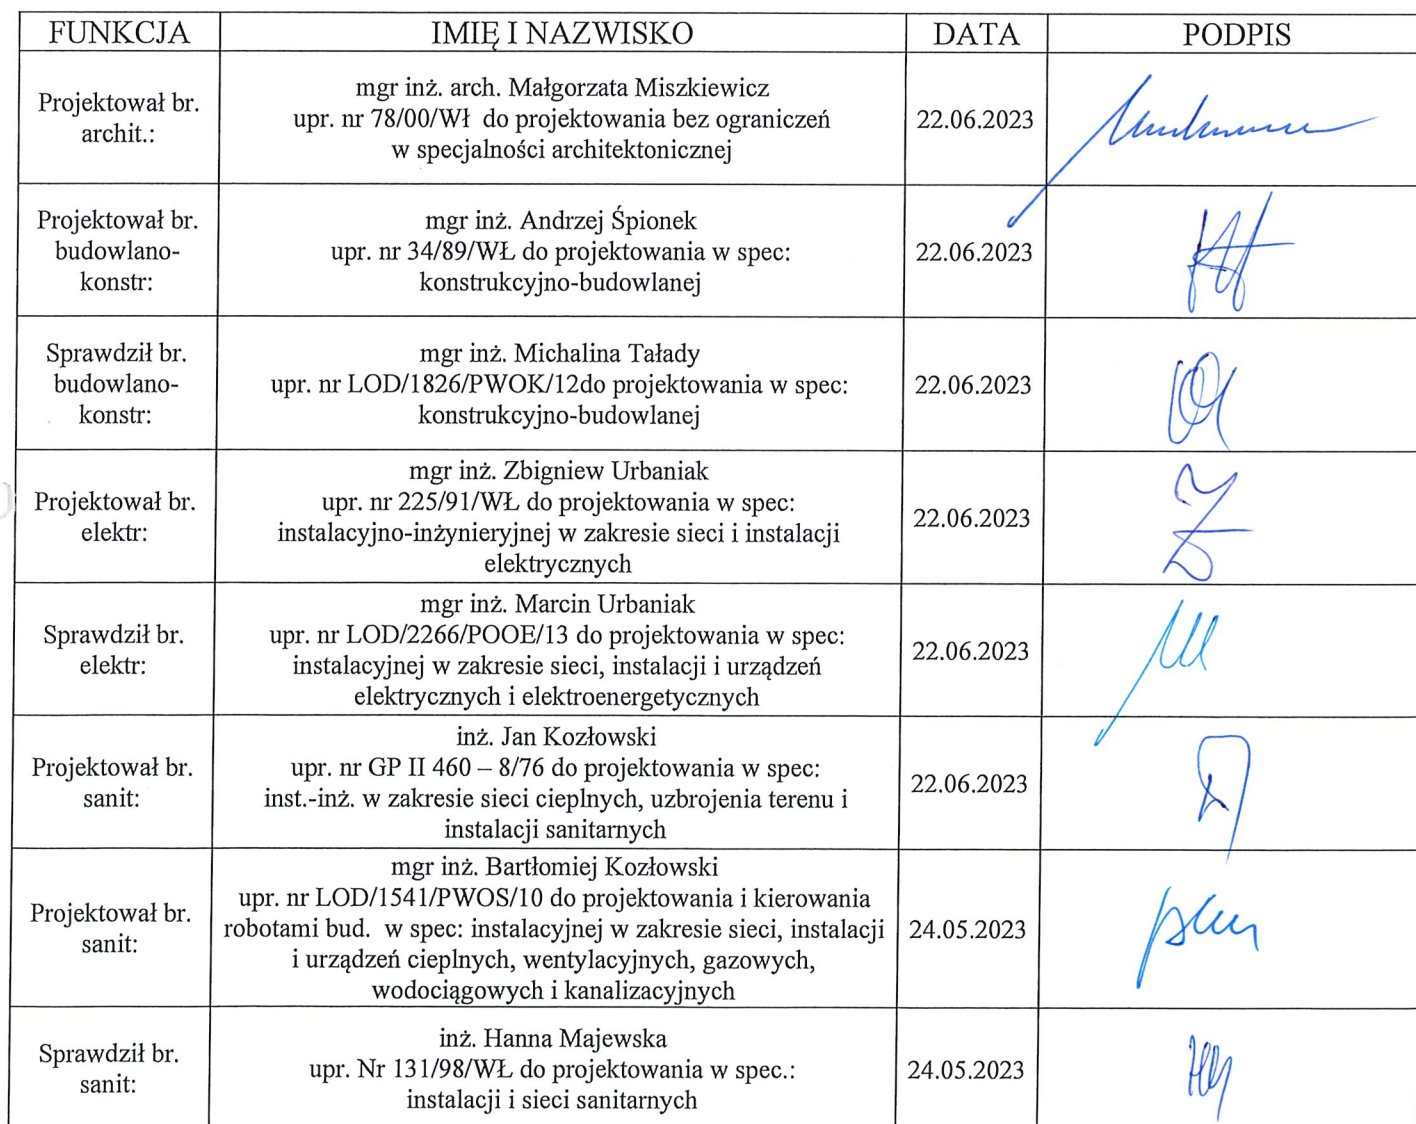 FUNKCJA IMIĘ I NAZWISKO DATA PODPIS
Projektował br.
archit.:
mgr inż. arch. Małgorzata Miszkiewicz
upr. nr 78/00/Wł do projektowania bez ograniczeń
w specjalności architektonicznej
22.06.2023
Projektował br.
budowlano-
konstr:
mgr inż. Andrzej Śpionek
upr. nr 34/89/WŁ do projektowania w spec:
konstrukcyjno-budowlanej
22.06.2023
Sprawdził br.
budowlano-
konstr:
mgr inż. Michalina Tałady
upr. nr LOD/1826/PWOK/12do projektowania w spec:
konstrukcyjno-budowlanej
22.06.2023
Projektował br.
elektr:
mgr inż. Zbigniew Urbaniak
upr. nr 225/91/WŁ do projektowania w spec:
instalacyjno-inżynieryjnej w zakresie sieci i instalacji
elektrycznych
22.06.2023
Sprawdził br.
elektr:
mgr inż. Marcin Urbaniak
upr. nr LOD/2266/POOE/13 do projektowania w spec:
instalacyjnej w zakresie sieci, instalacji i urządzeń
elektrycznych i elektroenergetycznych
22.06.2023
Projektował br.
sanit:
inż. Jan Kozłowski
upr. nr GP II 460 – 8/76 do projektowania w spec:
inst.-inż. w zakresie sieci cieplnych, uzbrojenia terenu i
instalacji sanitarnych
22.06.2023
Projektował br.
sanit:
mgr inż. Bartłomiej Kozłowski
upr. nr LOD/1541/PWOS/10 do projektowania i kierowania
robotami bud. w spec: instalacyjnej w zakresie sieci, instalacji
i urządzeń cieplnych, wentylacyjnych, gazowych,
wodociągowych i kanalizacyjnych
24.05.2023
Sprawdził br.
sanit:
inż. Hanna Majewska
upr. Nr 131/98/WŁ do projektowania w spec.:
instalacji i sieci sanitarnych
24.05.2023